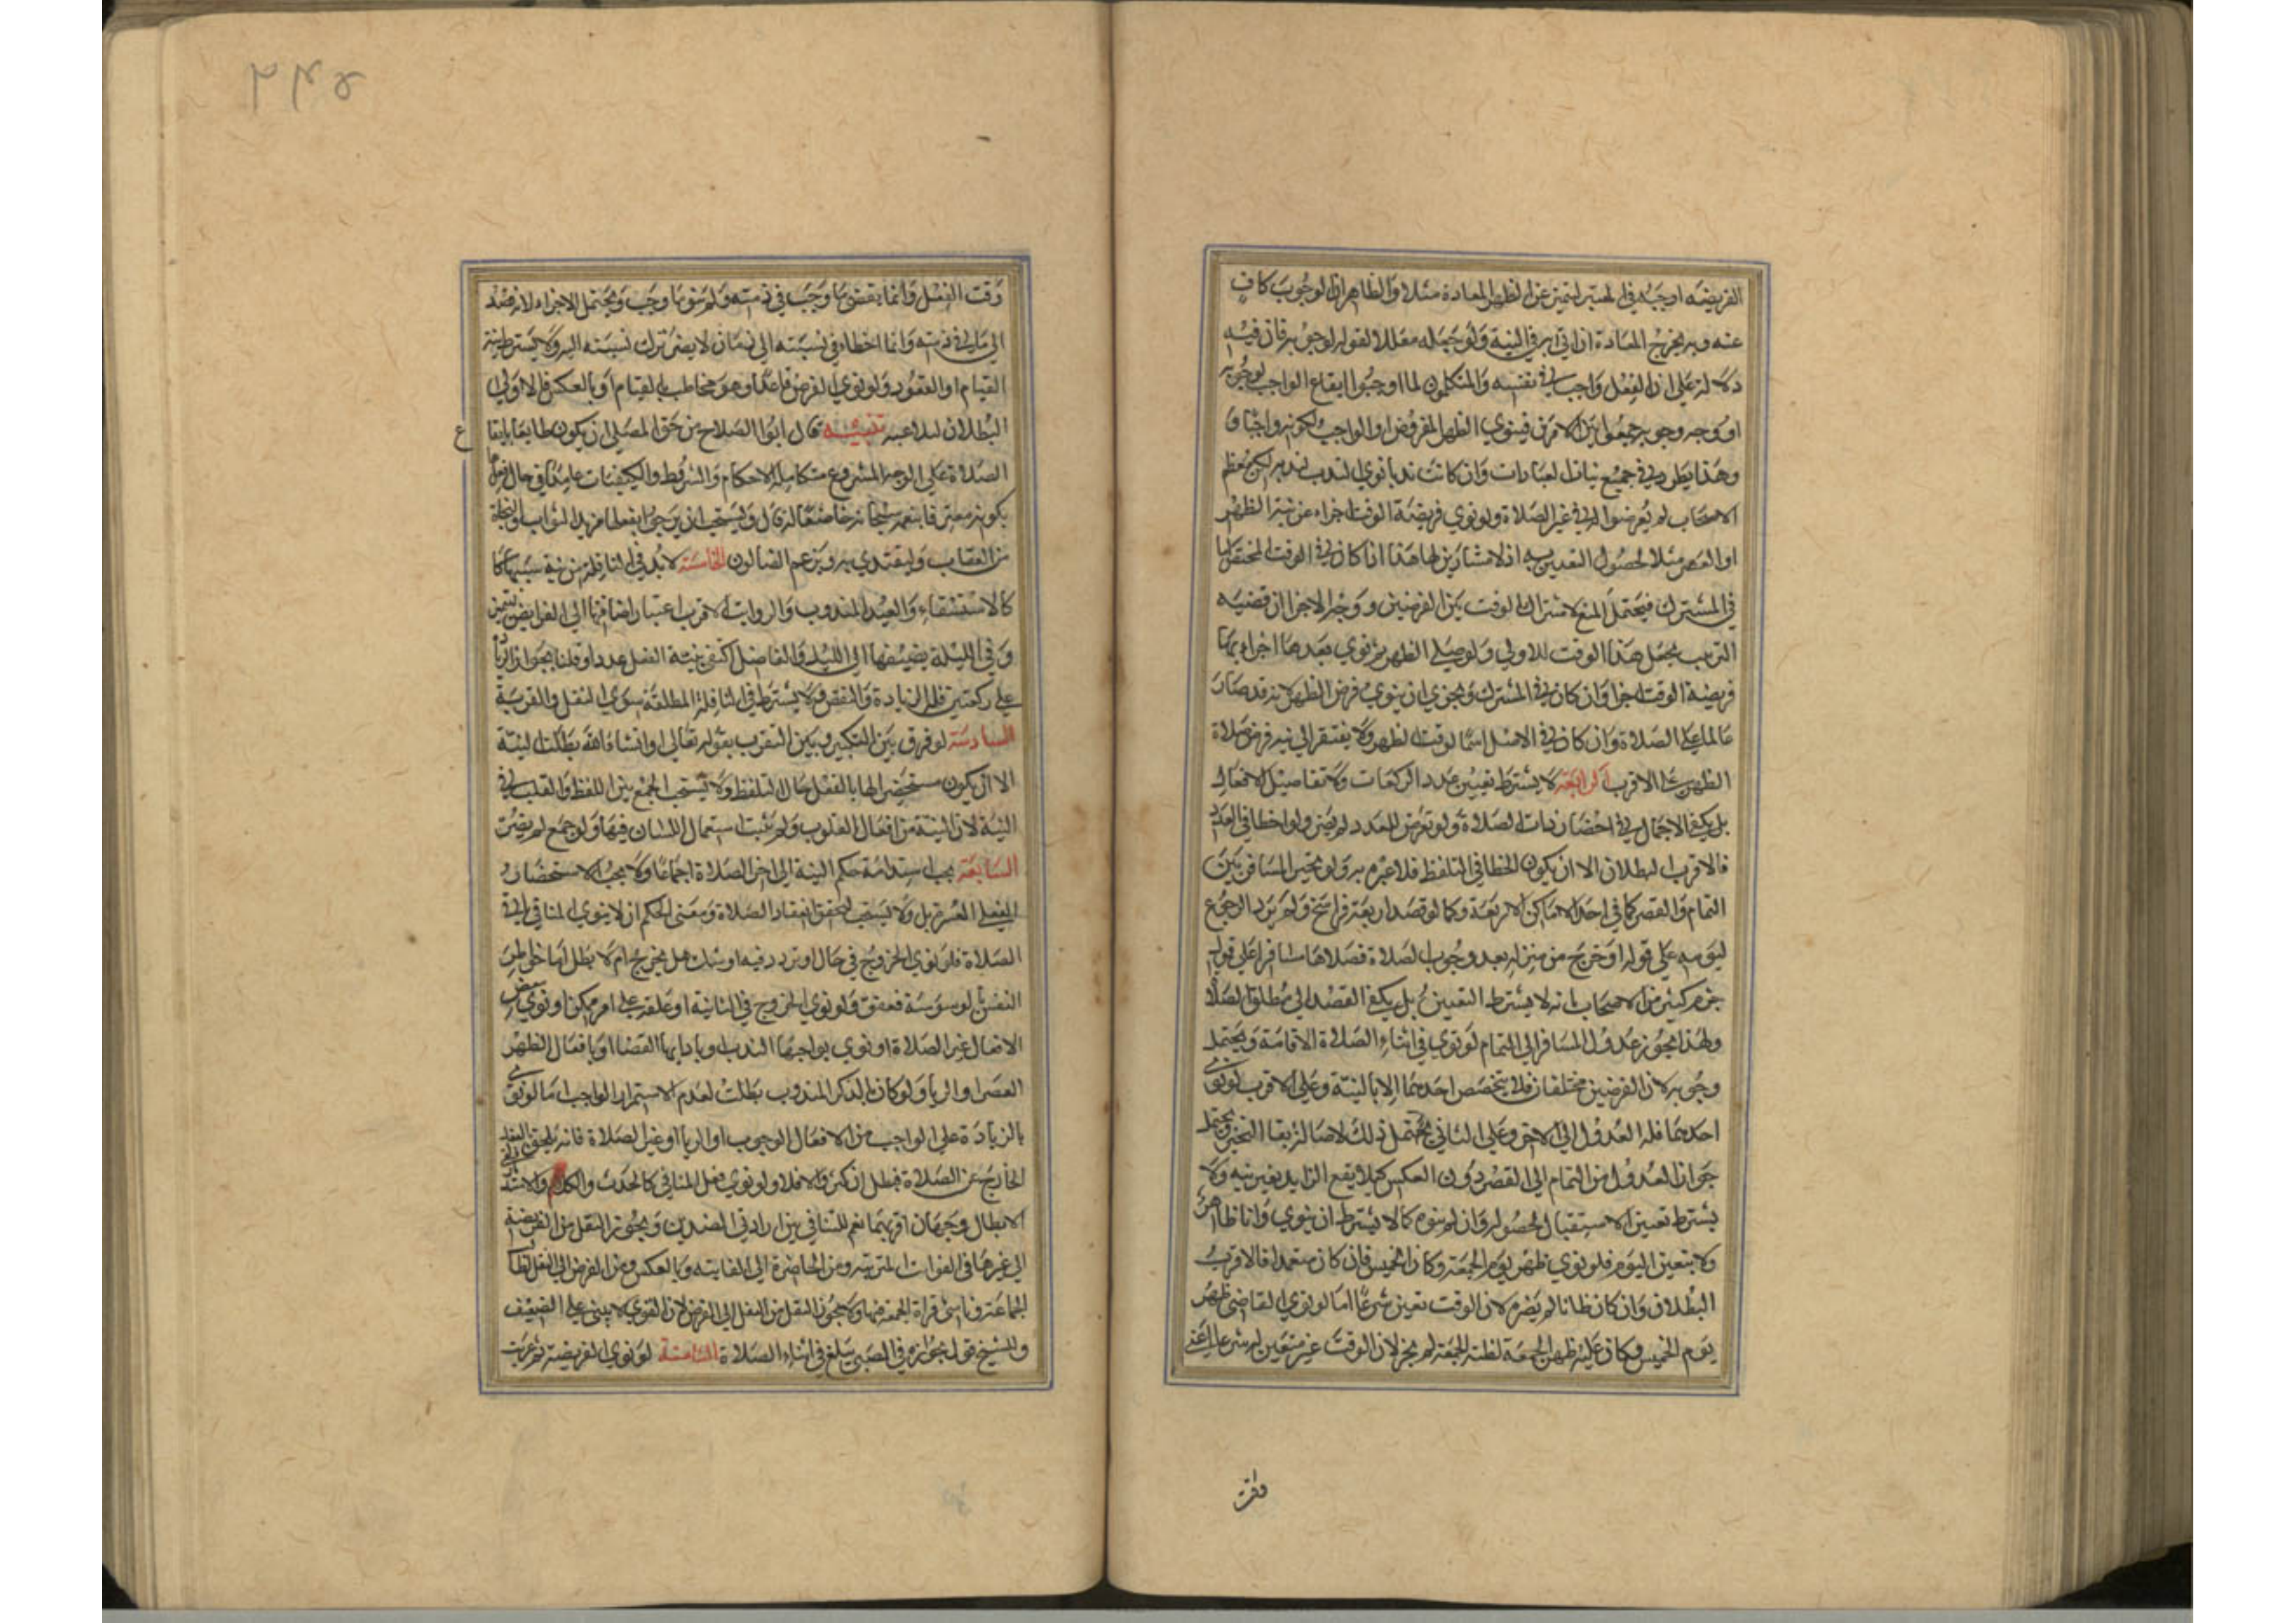 الفريضه اوجبه في المسير ليتميز عن الظهر المعادة مثلا والظاهر ان الوجوب كاف
عنه وبه يخرج المعادة اذ اتى به في النية ولو جعله معللا لقوله لوجوبه فان فيه
دلالة على ان الفعل واجب في نفسه والمتكلمون لما اوجبوا ايقاع الواجب لوجوبه
او وجه وجوبه جمعوا بين الامرين فينوي الظهر المفروض او الواجب لكونه واجبا
وهذا يطرد في جميع نيات العبادات وان كانت ندبا نوى الندب لندبه لكن معظم
الاصحاب لم يعرضوا له في غير الصلاة ولو نوى فريضة الوقت اجزاه عن نية الظهر
او العصر مثلا لحصول التعيين به اذ لا مشارك لها هذا اذا كان في الوقت المختص اما
في المشترك فيحتمل المنع لاشتراك الوقت بين الفرضين ووجه الاجزا ان قضيه
الترتيب يجعل هذا الوقت للاولى ولو صلى الظهر ثم نوى بعدها اجزاء بما
فريضة الوقت اجزا وان كان في المشترك ويجزي ان ينوي فرض الظهر لانه قد صار
عالما على الصلاة وان كان في الاصل اسما لوقت الظهر ولا يفتقر الى نية فرض صلاة
الظهر على الاقرب الرابعة لا يشترط تعيين عدد الركعات ولا تفاصيل الافعال
بل يكفي الاجمال في احضار ذات الصلاة ولو تعرض للعدد لم يضر ولو اخطا في العدد
فالاقرب البطلان الا ان يكون الخطا في التلفظ فلا عبرة به ولو تخير المسافر بين
التمام والقصر كما في احد الاماكن الاربعة وكما لو قصد اربعة فراسخ ولم يرد الرجوع
ليومه على قول او خرج من منزله بعد وجوب الصلاة فصلاها مسافرا على قول
جزم كثير من الاصحاب بانه لا يشترط التعيين بل يكفي القصد الى مطلق الصلاة
ولهذا يجوز عدول المسافر الى التمام لو نوى في اثناء الصلاة الاقامة ويحتمل
وجوبه لان الفرضين مختلفان فلا يتخصص احدهما الا بالنية وعلى الاقرب لو نوى
احدهما فله العدول الى الاخر وعلى الثاني يحتمل ذلك لاصالة بقا التخير ويحتمل
جواز العدول من التمام الى القصر دون العكس كيلا يقع الزايد بغير نيه ولا
يشترط تعيين الاستقبال لحصوله وان لم ينوه كما لا يشترط ان ينوي وانا طاهر
ولا يتعين اليوم فلو نوى ظهر يوم الجمعة وكان الخميس فان كان متعمدا فالاقرب
البطلان وان كان ظانا لم يضره لان الوقت تعين شرعا اما لو نوى القاضي ظهر
يوم الخميس وكان عليه ظهر الجمعة لظنه الجمعة لم يجز لان الوقت غير متعين له شرعا
وقت
وقت الفعل وانما يقضي ما وجب في ذمته ولم ينو ما وجب ويحتمل الاجزاء لانه قصد
الى ما في ذمته وانما اخطاء في نسبته الى زمان لا يضر ترك نسبته اليه ولا يشترط نية
القيام او القعود ولو نوى الفرض قاعدا وهو مخاطب بالقيام او بالعكس فالاولى
البطلان لتلاعبه تنبيه قال ابو الصلاح من حق المصلي ان يكون طايعا بايقا
ع
الصلاة على الوجه المشروع متكاملة الاحكام والشروط والكيفيات عامدا في حال فعلها
بكونه معترفا بنعمه سبحانه خاضعا له قال ويستحب ان يرجو بفعلها مزيد الثواب والنجاة
من العقاب وليقتدي به ويرغم الضالون الخامسة لا بد في النافلة من نية سببها كما
كالاستسقاء والعيد المندوب والرواتب الاقرب اعتبار اضافتها الى الفرايض لتتميز
وفي الليلة يضيفها الى الليل والفاضل اكتفى بنية الفعل عددا وقلنا بجواز الزيادة
على ركعتين فله الزيادة والنقص ولا يشترط في النافلة المطلقة سوى النفل والقربة
السادسة لو فرق بين التكبير وبين التقرب بقوله تعالى او انشاء الله بطلت النية
الا ان يكون مستحضرا لها بالفعل حال التلفظ ولا يستحب الجمع بين اللفظ والقلب في
النية لان النية من افعال القلوب ولم يثبت استعمال اللسان فيها ولو جمع لم يضر
السابعة يجب استدامة حكم النية الى اخر الصلاة اجماعا ولا يجب الاستحضار
الفعلي للعسر بل ولا يستحب لتحقق انعقاد الصلاة ومعنى الحكم ان لا ينوي المنافي في
الصلاة فلو نوى الخروج في حال او تردد فيه او شك هل يخرج ام لا بطل اما خاطر
النفس بالوسوسة فعفو ولو نوى الخروج في الثانية او علقه على امر ممكن او نوى ببعض
الافعال غير الصلاة او نوى بواجبها الندب او بادايها القضا او بافعال الظهر
العصر او الريا ولو كان بالذكر المندوب بطلت لعدم الاستمرار الواجب اما لو نوى
بالزيادة على الواجب من الافعال الوجوب او الريا او غير الصلاة فانه يلحق بالفعل
الخارج عن الصلاة فيبطل ان كثر والا فلا ولو نوى فعل المنافي كالحدث والكلام والاستدبار ففي
الابطال وجهان اقربهما نعم للتنافي بين ارادتي الضدين ويجوز النقل من الفريضة
الى غيرها في الفوات المترتبه ومن الحاضرة الى الفايته وبالعكس ومن الفرض الى النفل لطالب
الجماعة وناسي قراة الجمعة فيها ولا يجوز النقل من النفل الى الفرض لان القوي لا يبنى على الضعيف
وللشيخ قول بجوازه في الصبي يبلغ في اثناء الصلاة الثامنة لو نوى الفريضة ثم عزبت